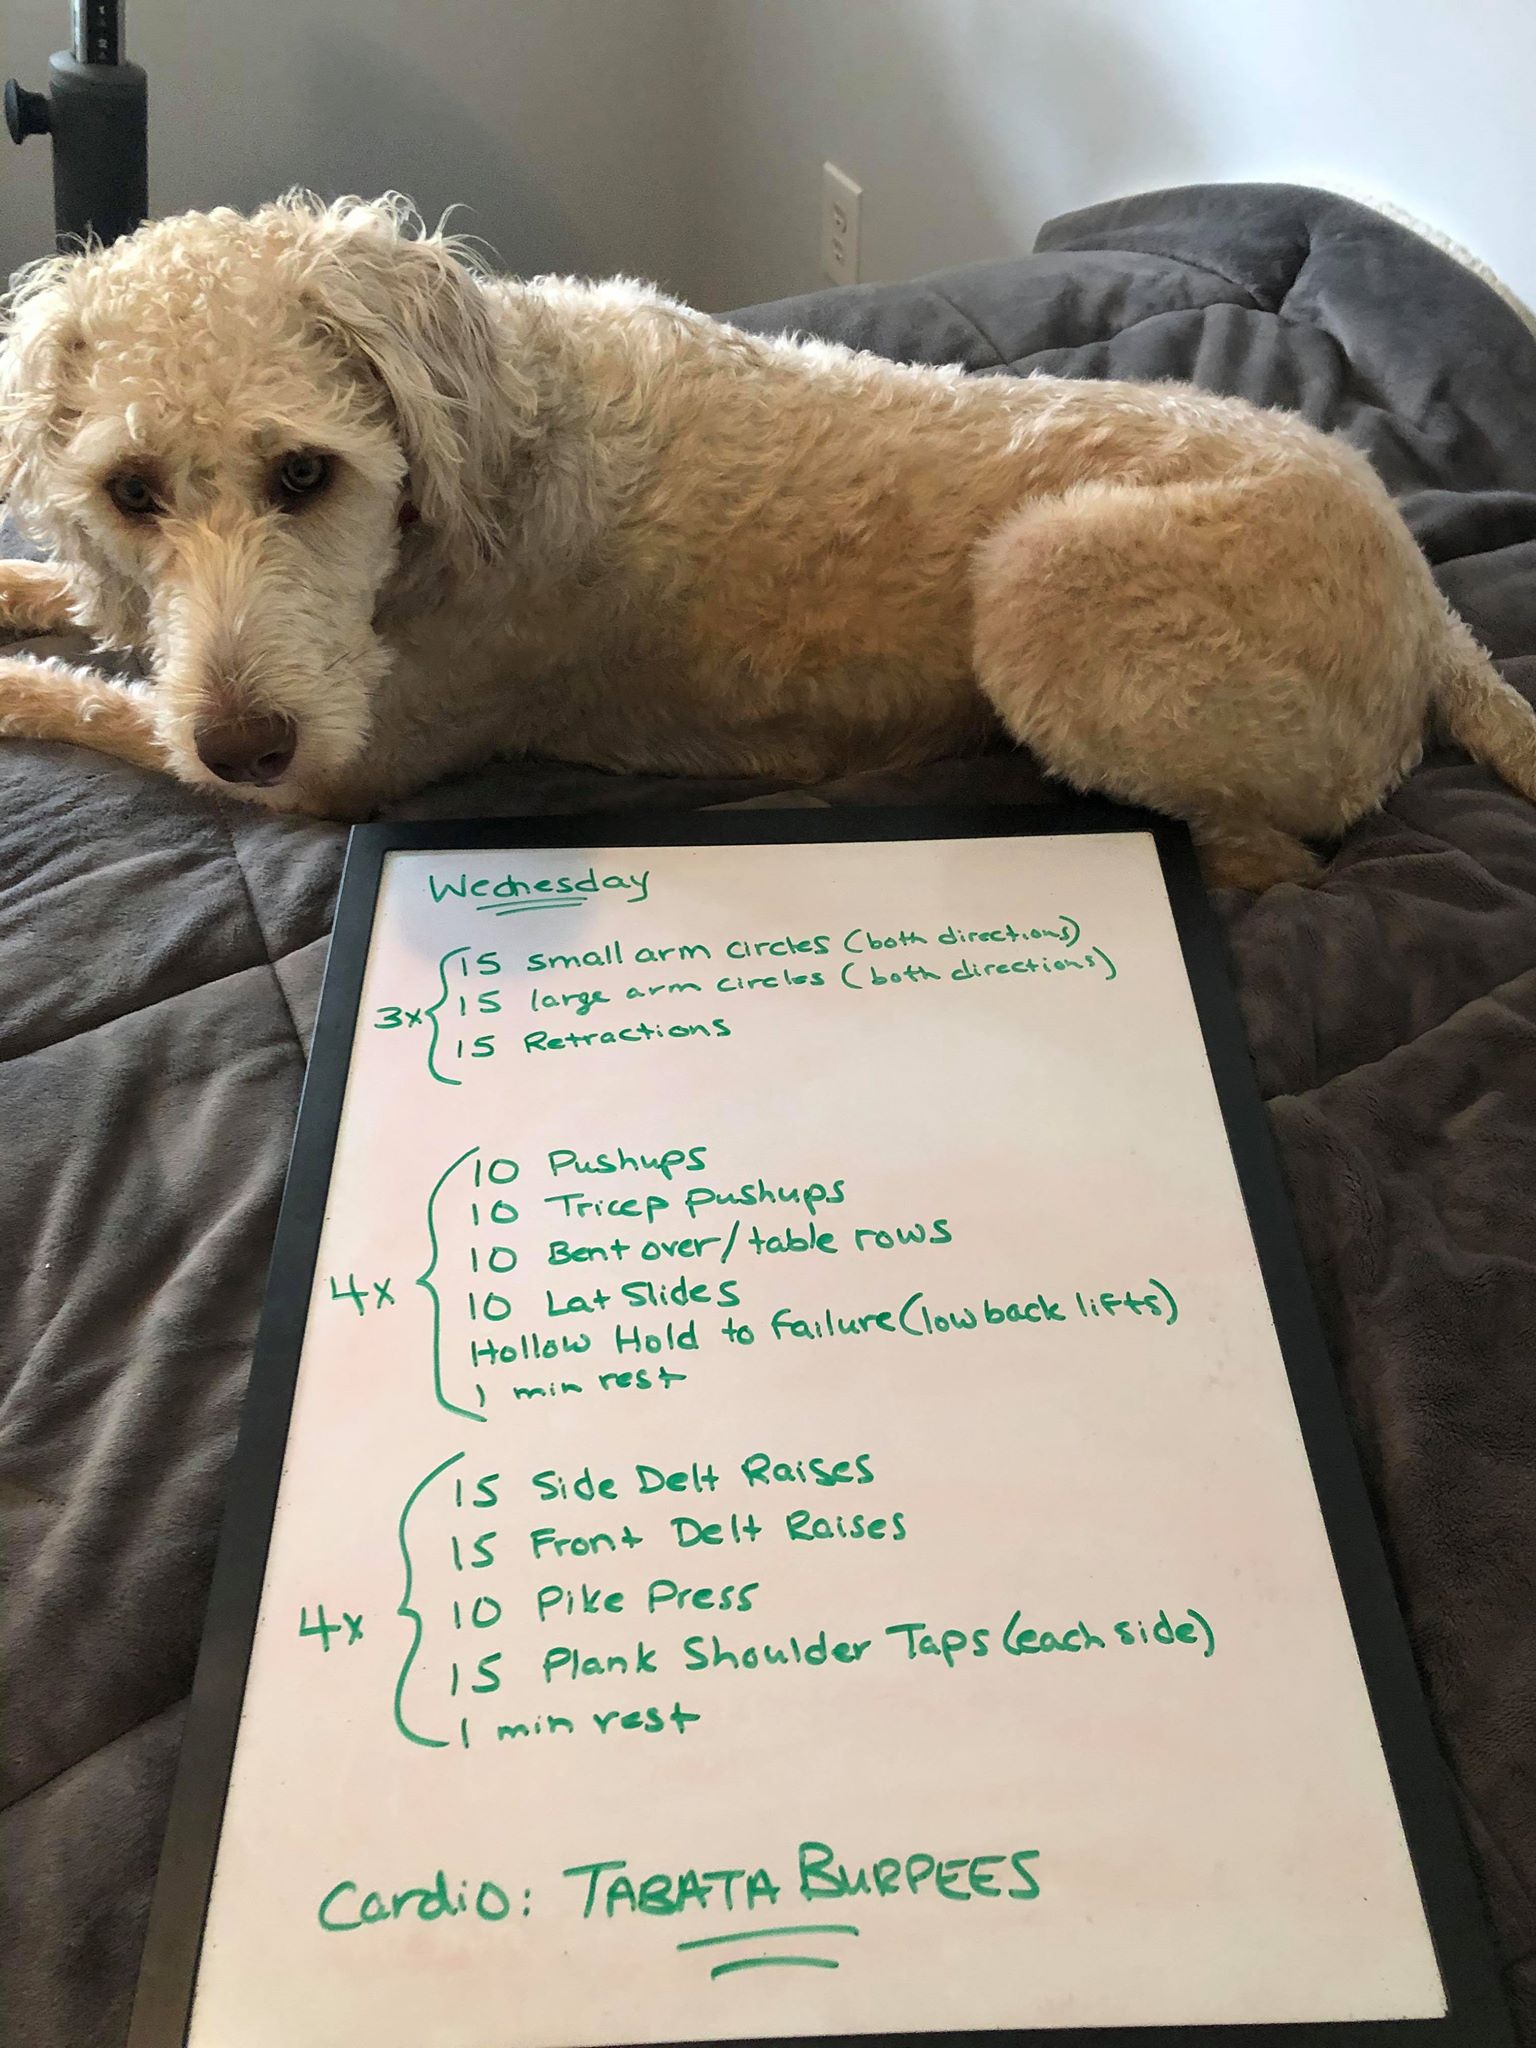 Wednesday
3x
15 small arm circles (both directions)
15 large arm circles (both directions)
15 Retractions
4x
10 Pushups
10 Tricep pushups
10 Bent over/table rows
10 Lat Slides
Hollow Hold to failure (low back lifts)
1 min rest
4x
15 Side Delt Raises
15 Front Delt Raises
10 Pike Press
15 Plank Shoulder Taps (each side)
1 min rest
Cardio: TABATA BURPEES